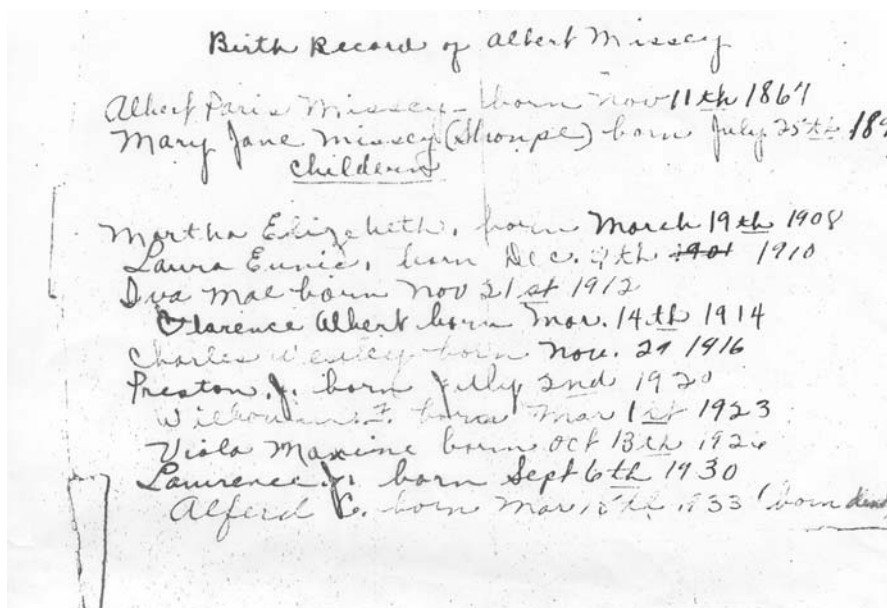 Birth Record of Albert Missey
Albert Paris Missey - born Nov 11th 1867
Mary Jane Missey (Stroupe) born July 25th
Childern
Martha Elizebeth. born March 19th 1908
Laura Eunic. born Dec. 9th 1901 1910
Iva Mae born Nov 21st 1912
Clarence Albert born Mar. 14th 1914
Charles Wesley born Nov. 29 1916
Preston. J. born July 2nd 1920
born Mar 1st 1923
Viola Maxine born Oct 13th 1926
Lawrence J. born Sept 6th 1930
Alferd C. born Mar 1933 born dead